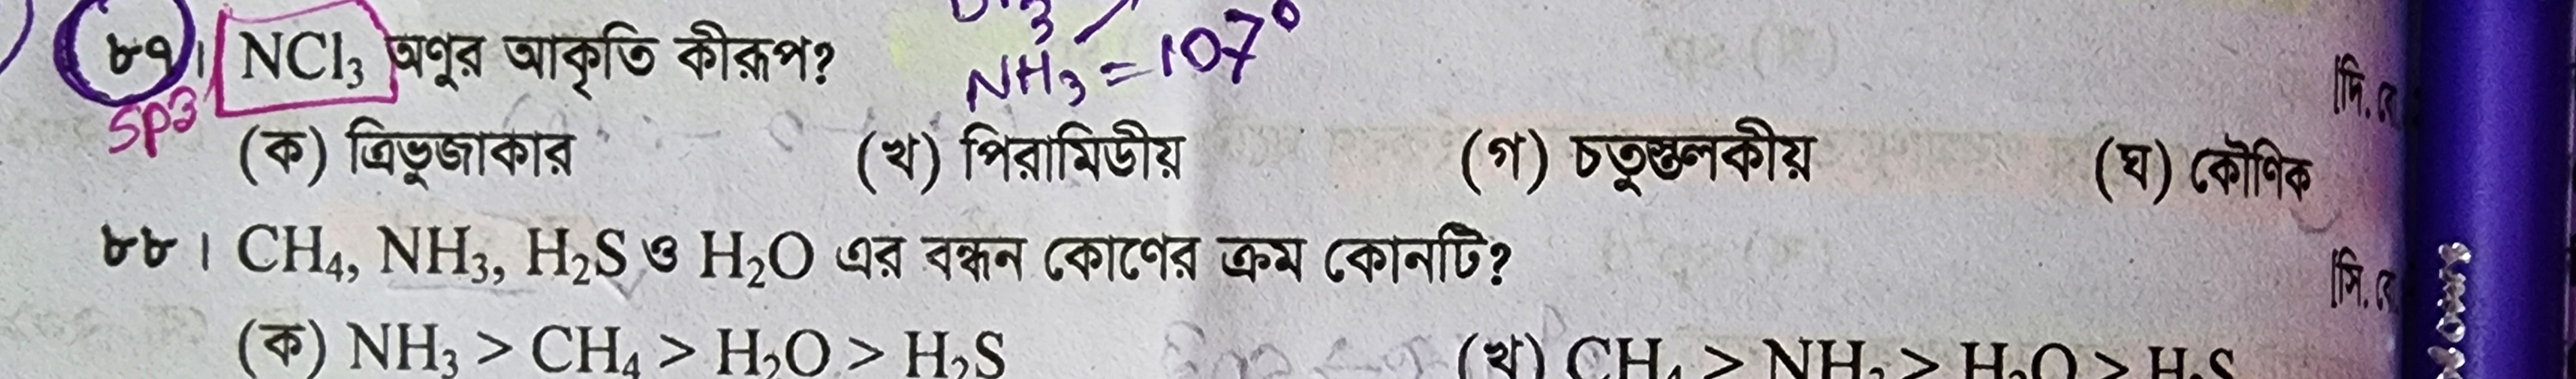 ৮৭। NCl₃ অণুর আকৃতি কীরূপ?
NH₃ = 107°
[দি. বো.
sp³
(ক) ত্রিভুজাকার (খ) পিরামিডীয় (গ) চতুস্তলকীয় (ঘ) কৌণিক
৮৮। CH₄, NH₃, H₂S ও H₂O এর বন্ধন কোণের ক্রম কোনটি?
[সি. বো.
(ক) NH₃ > CH₄ > H₂O > H₂S (খ) CH₄ > NH₃ > H₂O > H₂S